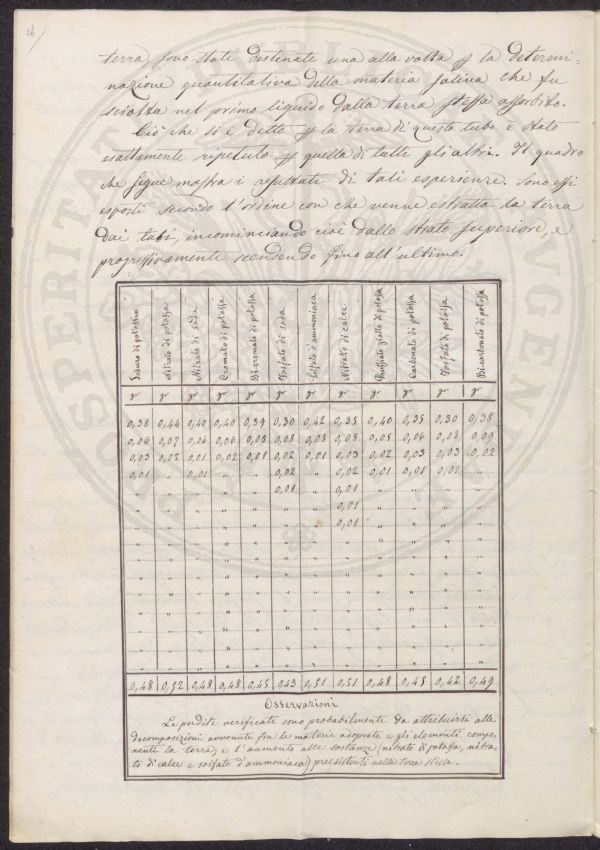 terra, sono state destinate una alla volta p la determi-
nazione quantitativa della materia salina che fu
sciolta nel primo liquido dalla terra stessa assorbito.
Ciò che si è detto p la terra di questo tubo è stato
esattamente ripetuto p quella di tutti gli altri. Il quadro
che segue mostra i resultati di tali esperienze. Sono essi
esposti secondo l'ordine con che venne estratta la terra
dai tubi, incominciando cioè dallo strato superiore, e
progressivamente scendendo fino all'ultimo.
Ioduro di potassio Nitrato di potassa Nitrato di soda Cromato di potassa Bi-cromato di potassa Fosfato di soda Solfato d'ammoniaca Nitrato di calce Prussiato giallo di potassa Carbonato di potassa Fosfato di potassa Bi-carbonato di potassa
gr gr gr gr gr gr gr gr gr gr gr gr
0,38 0,44 0,40 0,40 0,39 0,30 0,42 0,35 0,40 0,35 0,30 0,38
0,06 0,07 0,06 0,06 0,05 0,08 0,08 0,08 0,05 0,06 0,08 0,09
0,03 0,02 0,01 0,02 0,01 0,02 0,01 0,03 0,02 0,03 0,03 0,02
0,01 " 0,01 " " 0,02 " 0,02 0,01 0,01 0,01 "
" " " " " 0,01 " 0,01 " " " "
" " " " " " " 0,01 " " " "
" " " " " " " 0,01 " " " "
" " " " " " " " " " " "
" " " " " " " " " " " "
" " " " " " " " " " " "
" " " " " " " " " " " "
" " " " " " " " " " " "
" " " " " " " " " " " "
" " " " " " " " " " " "
" " " " " " " " " " " "
0,48 0,52 0,48 0,48 0,45 0,43 0,51 0,51 0,48 0,45 0,42 0,49
Osservazioni
Le perdite verificate sono probabilmente da attribuirsi alle
decomposizioni avvenute fra le materie adoprate e gli elementi compo-
nenti la terra; e l'aumento alle sostanze (nitrato di potassa, nitra-
to di calce e solfato d'ammoniaca) preesistenti nella terra stessa.